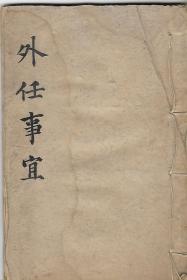 外任事宜